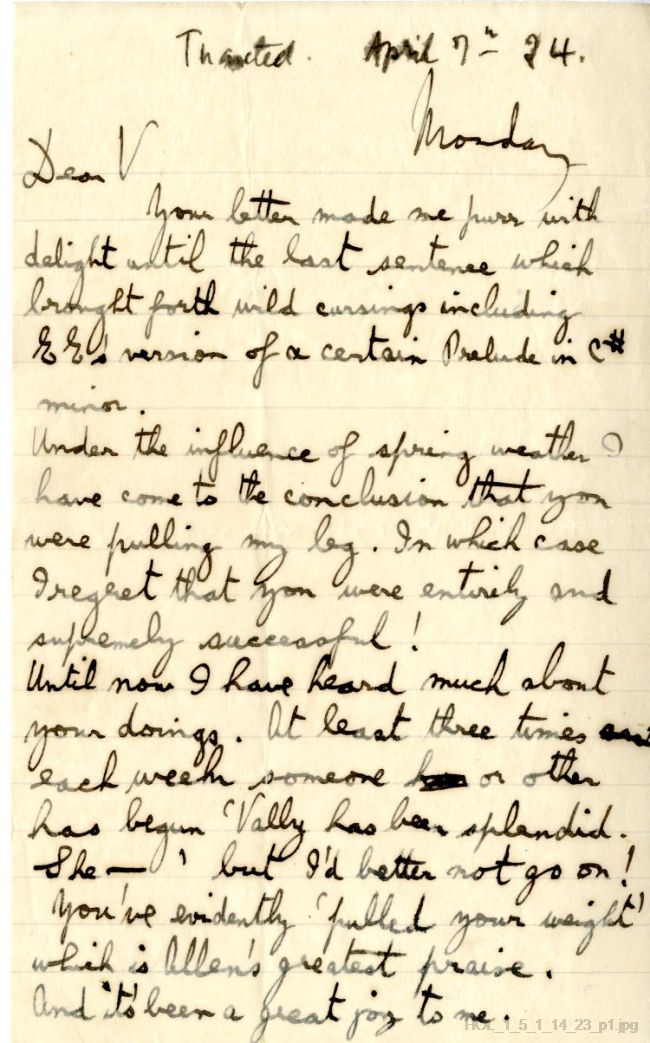 Thaxted. April 7th 24.
Monday
Dear V
Your letter made me purr with
delight until the last sentence which
brought forth wild cursings including
EE's version of a certain Prelude in C#
minor.
Under the influence of spring weather I
have come to the conclusion that you
were pulling my leg. In which case
I regret that you were entirely and
supremely successful!
Until now I have heard much about
your doings. At least three times
each week someone or other
has begun 'Vally has been splendid.
She — ' but I'd better not go on!
You've evidently 'pulled your weight'
which is Allen's greatest praise.
And 'ts' been a great joy to me.
HOL_1_5_1_14_23_p1.jpg